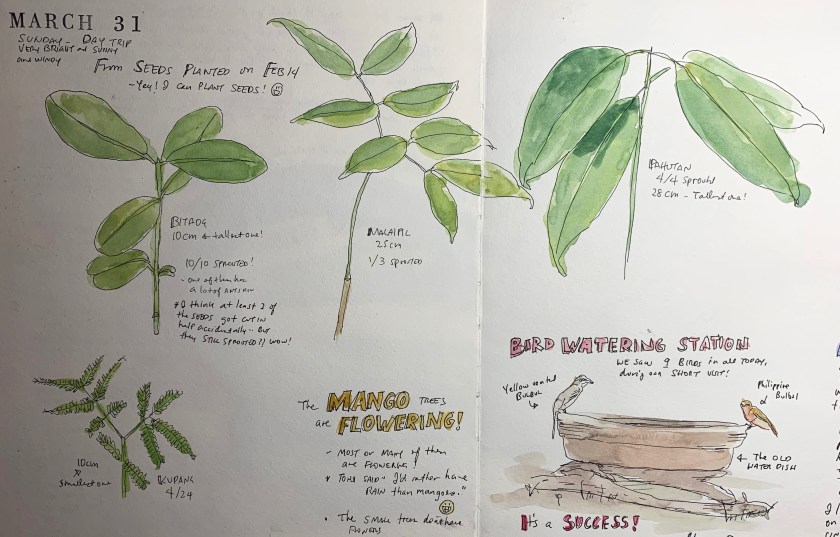 MARCH 31
SUNDAY - DAY TRIP
VERY BRIGHT and SUNNY
and WINDY
From SEEDS PLANTED on FEB 14
- Yey! I can PLANT SEEDS!
BITAOG
10cm tallest one!
10/10 SPROUTED!
- one of them has
a lot of
I think at least 2 of
the SEEDS got CUT IN
half accidentally - But
they STILL SPROUTED!! WOW!
MALAIPIL
25cm
1/3 SPROUTED
PAHUTAN
4/4 sprouts
28 cm - Tallest one!
10cm
smallest one
KUPANG
4/24
The MANGO TREES
are FLOWERING!
- MOST OR MANY of them
are FLOWERING!
SAID "I'd rather have
RAIN than mangoes."
The SMALL tree doesn't have
FLOWERS
BIRD WATERING STATION
WE SAW 9 BIRDS in all TODAY,
during our SHORT VISIT!
Yellow vented
BULBUL
Philippine
Bulbul
The OLD
WATER DISH
It's a SUCCESS!